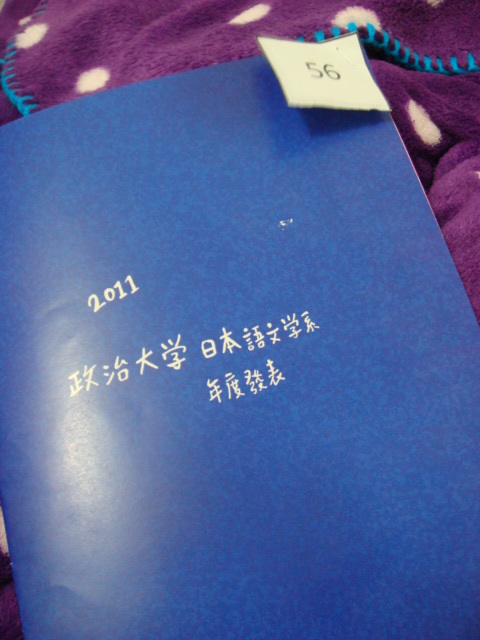 56
2011
政治大学 日本語文学系
年度發表